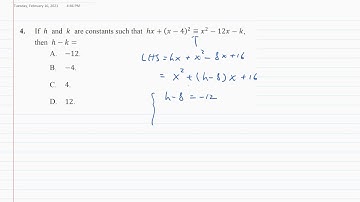 Tuesday, February 14, 2023 4:46 PM
4. If h and k are constants such that hx + (x − 4)² ≡ x² − 12x − k,
then h − k =
A. −12.
B. −4.
C. 4.
D. 12.
LHS = hx + x² − 8x + 16
= x² + (h−8)x + 16
{ h−8 = −12